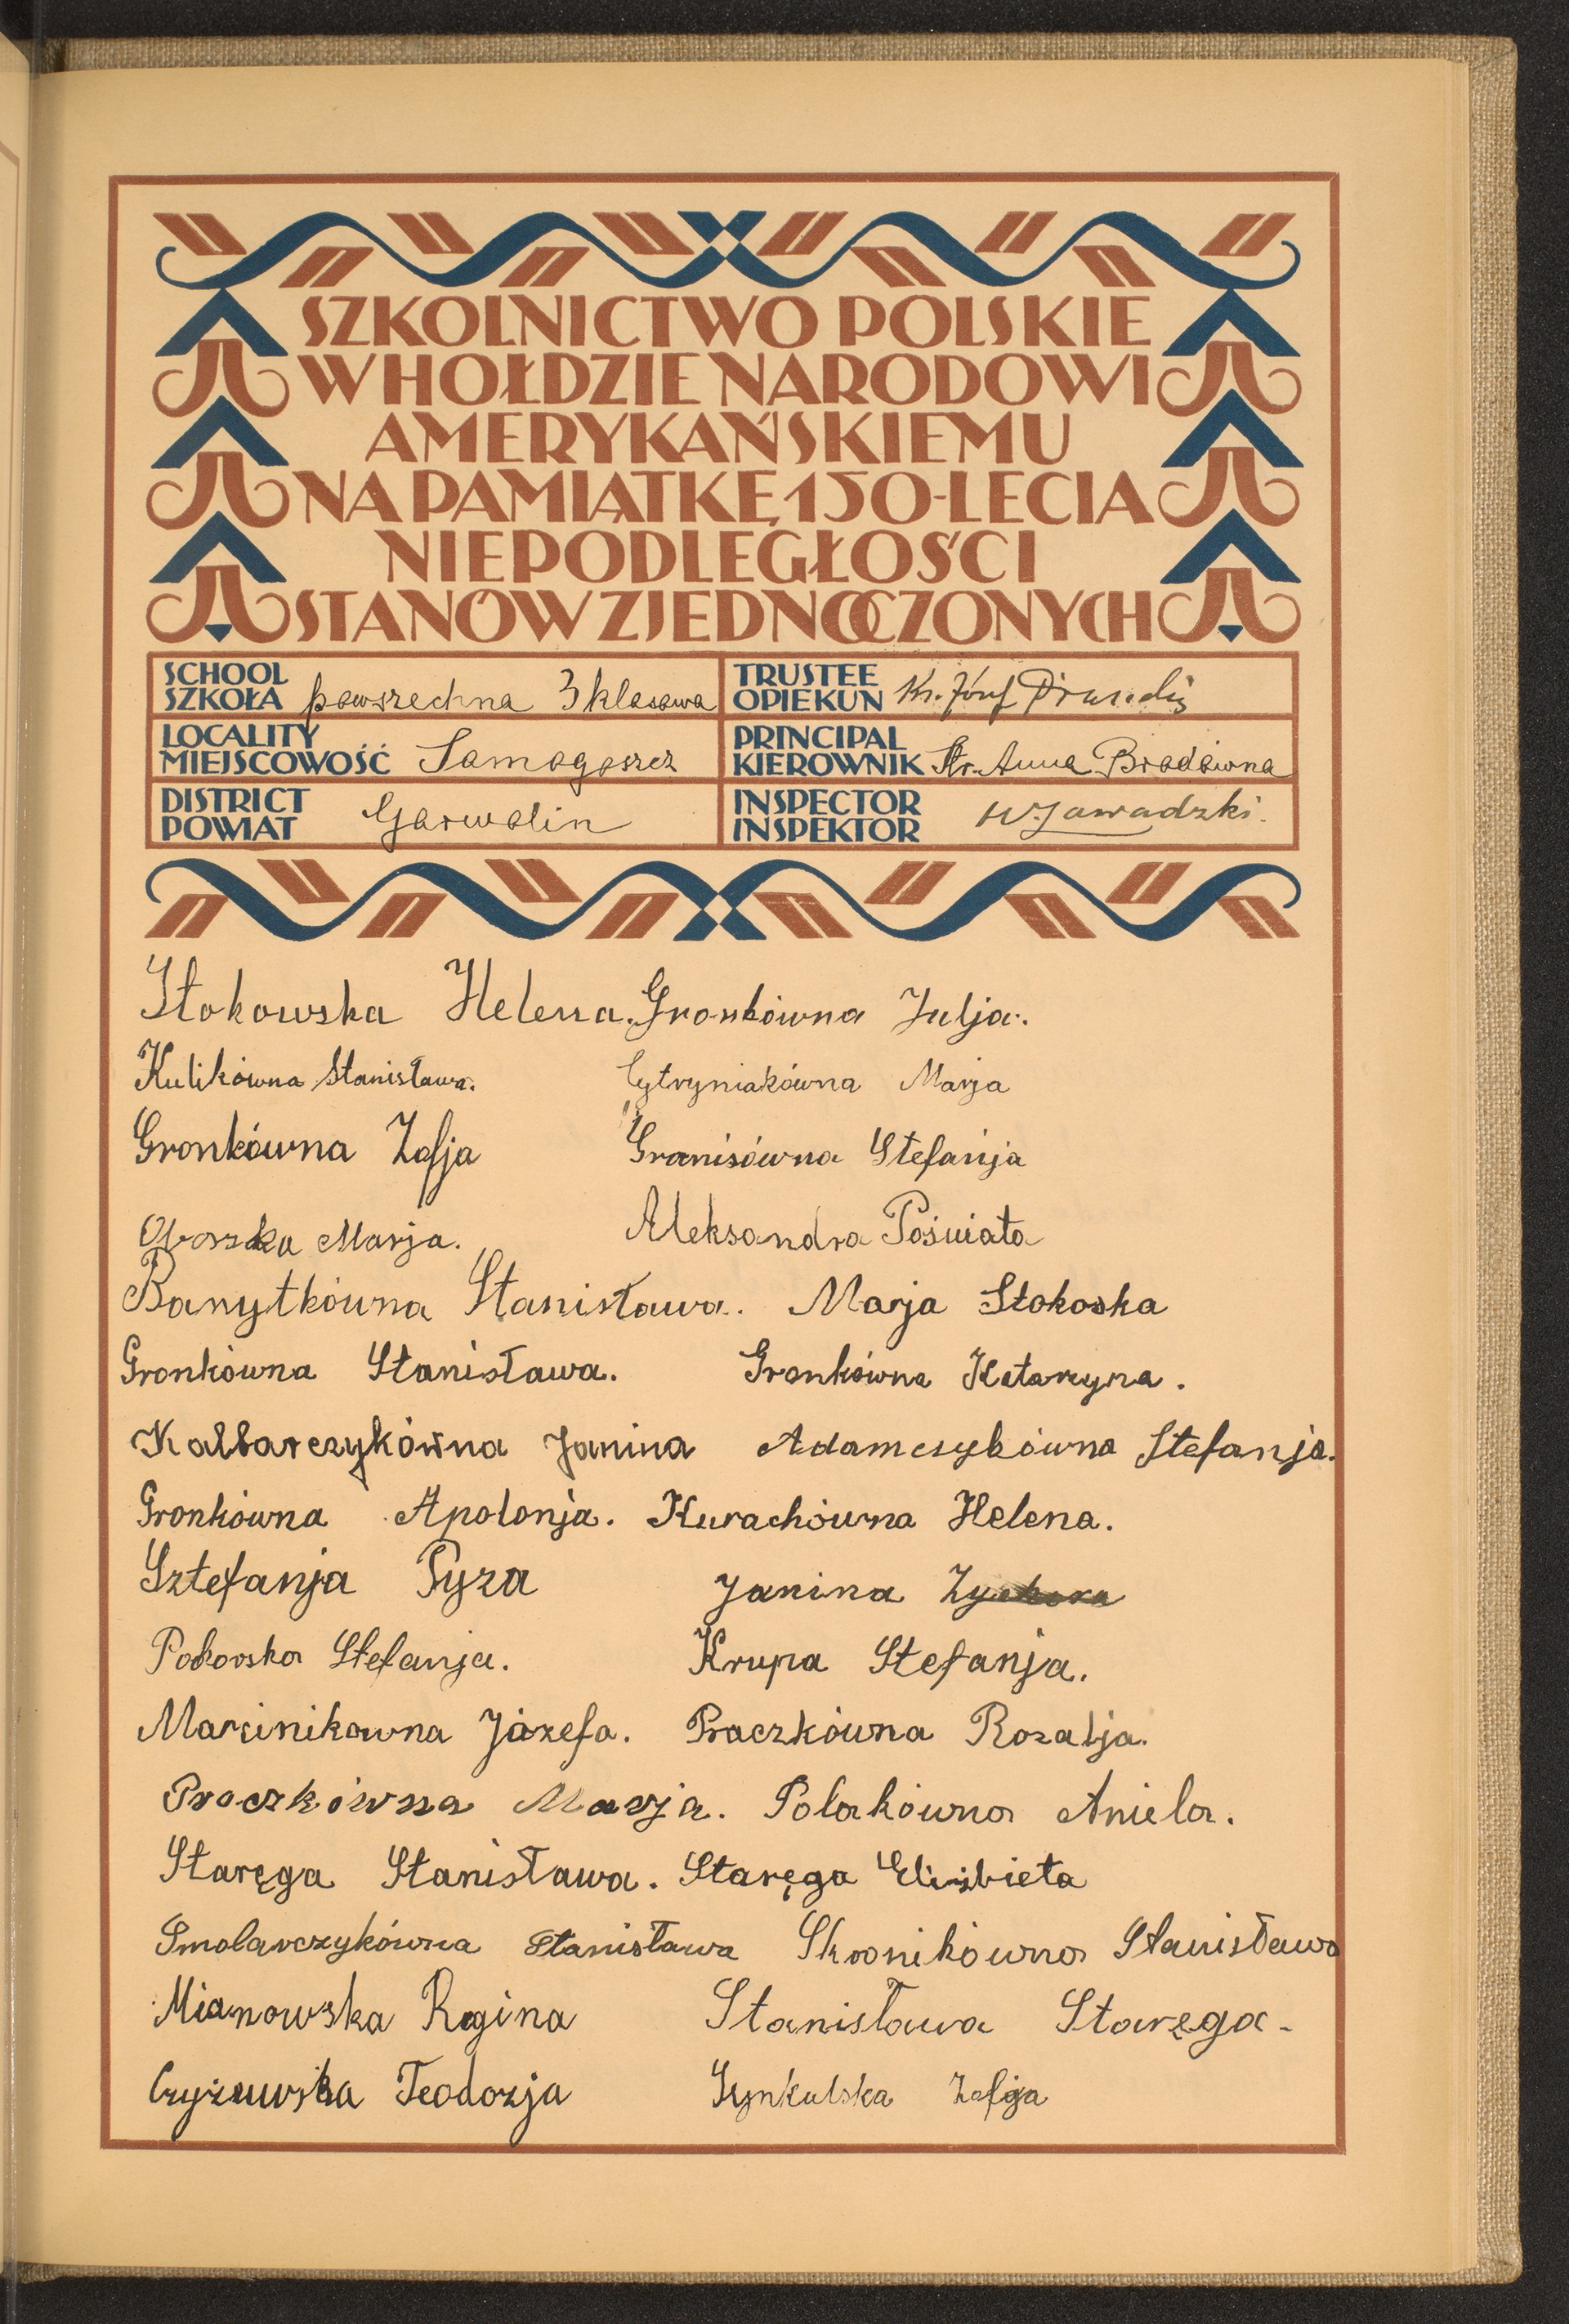 SZKOLNICTWO POLSKIE
W HOŁDZIE NARODOWI
AMERYKAŃSKIEMU
NA PAMIĄTKĘ 150-LECIA
NIEPODLEGŁOŚCI
STANÓW ZJEDNOCZONYCH
SCHOOL
SZKOŁA powszechna 3 klasowa
TRUSTEE
OPIEKUN Ks. Józef
LOCALITY
MIEJSCOWOŚĆ Samogoszcz
PRINCIPAL
KIEROWNIK Str. Anna Brodówna
DISTRICT
POWIAT Garwolin
INSPECTOR
INSPEKTOR W. Zawadzki.
Stokowska Helena. Gronkówna Julja.
Kulikówna Stanisława. Cytryniakówna Marja
Gronkówna Zofja Granisówna Stefanja
Marja. Aleksandra Poświata
Banytkówna Stanisława. Marja Stokoska
Gronkówna Stanisława. Gronkówna Katarzyna.
Kalbarczykówna Janina Adamczykówna Stefanja.
Gronkówna Apolonja. Kurachówna Helena.
Sztefanja Pyza Janina
Stefanja. Krupa Stefanja.
Marcinikowna Józefa. Praczkówna Rozalja.
Praczkówna Marja. Polakówna Aniela.
Staręga Stanisława. Staręga Elizbieta
Smolarczykówna Stanisława Skoonikówna Stanisława
Mianowska Regina Stanisława Staręga-
Czyżewska Teodozja Synkulska Zofja